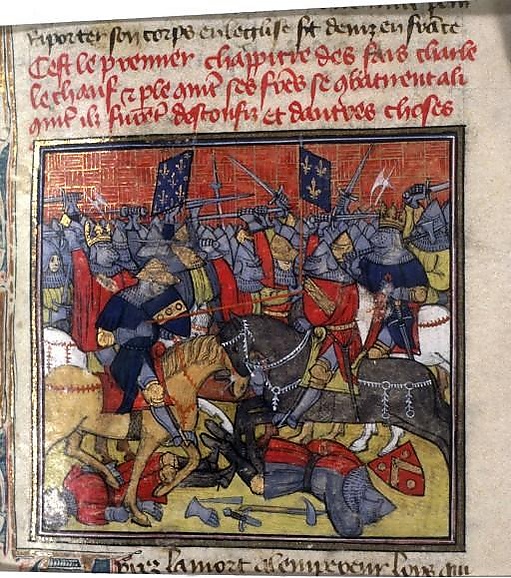 Riporter son corps en leglise st denis en france
Cest le premier chappitre des fais charle
le chauf et ple quint ses freres se combatirent a li
quint ilz furent desconfiz et dautres choses
pres la mort a lempereur loys qui